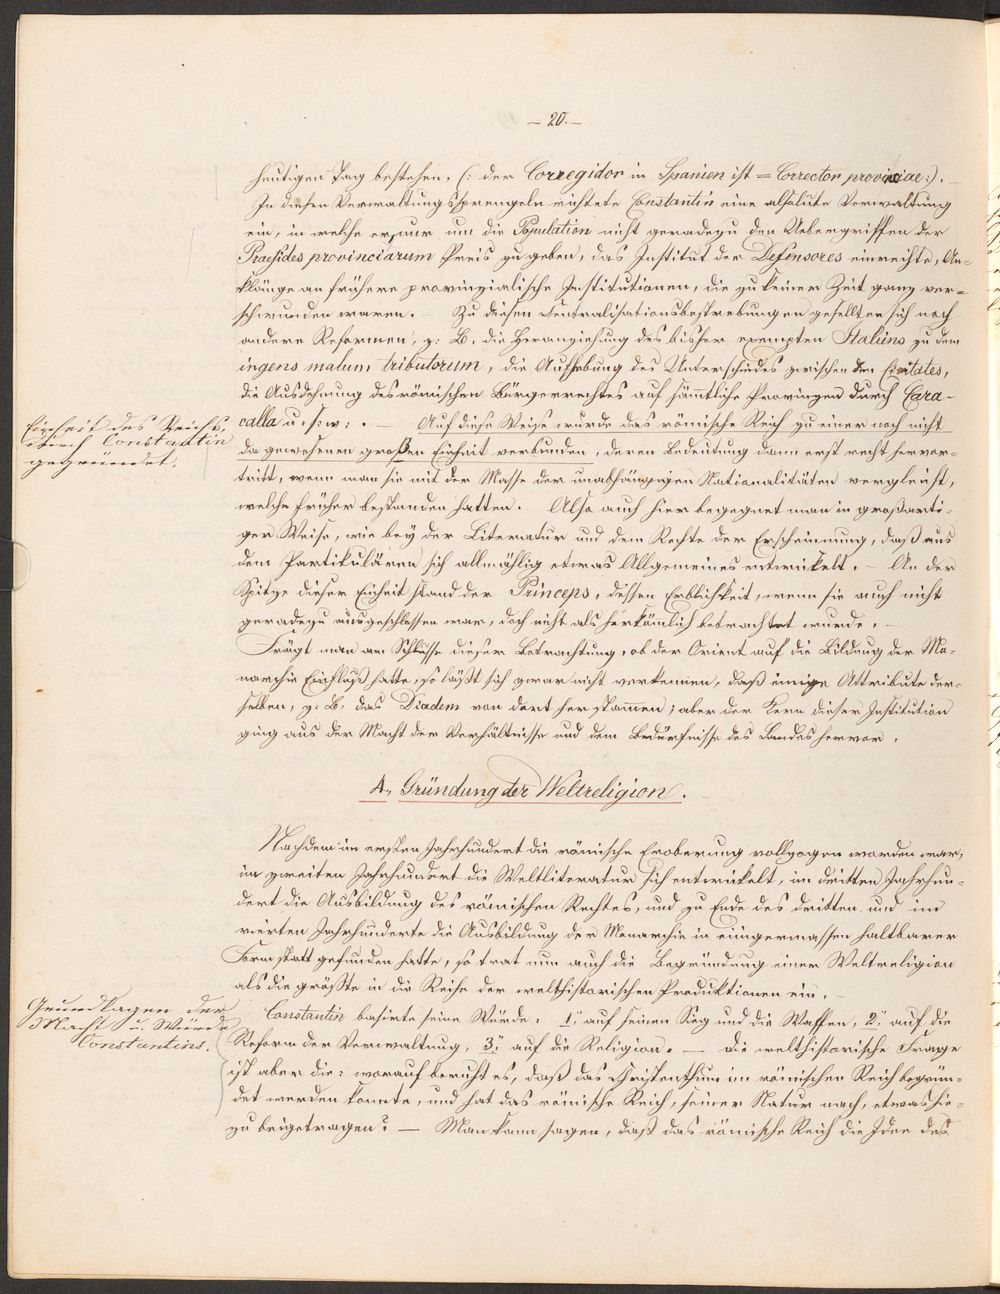 — 20. —
heutigen Tag bestehen, (: der Corregidor in Spanien ist = Corrector provinciae :). —
In diesen Verwaltungssprengeln richtete Constantin eine absolute Verwaltung
ein, in welche er, nur um die Population nicht geradezu den Uebergriffen der
Praesides provinciarum Preis zu geben, das Institut der Defensores einreihte, An=
klänge an frühere provinzialische Institutionen, die zu keiner Zeit ganz ver=
schwunden waren. — Zu diesen Centralisationsbestrebungen gesellten sich noch
andere Reformen, z: B. die Heranziehung des bisher exempten Italiens zu dem
ingens malum tributorum, die Aufhebung des Unterschiedes zwischen den Civitates,
die Ausdehnung des römischen Bürgerrechtes auf sämmtliche Provinzen durch Cara-
calla u. s: w: . — Auf diese Weise wurde das römische Reich zu einer noch nicht
Einheit des Reichs,
durch Constantin
gegründet.
da gewesenen großen Einheit verbunden, deren Bedeutung dann erst recht hervor-
tritt, wenn man sie mit der Masse der unabhängigen Nationalitäten vergleicht,
welche früher bestanden hatten. Also auch hier begegnet man in großarti-
ger Weise, wie bey der Literatur und dem Rechte der Erscheinung, daß aus
dem Partikulären sich allmählig etwas Allgemeines entwickelt. — An der
Spitze dieser Einheit stand der Princeps, dessen Erblichkeit, wenn sie auch nicht
geradezu ausgeschlossen war, doch nicht als herkömlich betrachtet wurde. —
Frägt man am Schlusse dieser Betrachtung, ob der Orient auf die Bildung der Mo-
narchie Einfluß hatte, so läßt sich zwar nicht verkennen, daß einige Attribute der-
selben, z: B. das Diadem von dort her stamen; aber der Kern dieser Institution
ging aus der Macht der Verhältnisse und dem Bedürfnisse des Landes hervor.
4., Gründung der Weltreligion.
Nachdem im ersten Jahrhundert die römische Eroberung vollzogen worden war,
im zweiten Jahrhundert die Weltliteratur sich entwickelt, im dritten Jahrhun-
dert die Ausbildung des römischen Rechtes, und zu Ende des dritten und im
vierten Jahrhunderte die Ausbildung der Monarchie in einigermassen haltbarer
Form statt gefunden hatte, so trat nun auch die Begründung einer Weltreligion
als die größte in die Reihe der welthistorischen Produktionen ein. —
Grundlagen der
Macht u. Würde
Constantins.
Constantin basirte seine Würde: 1., auf seinen Sieg und die Waffen, 2., auf die
Reform der Verwaltung, 3., auf die Religion. — Die welthistorische Frage
ist aber die: worauf beruht es, daß das Christenthum im römischen Reich begrün-
det werden konnte, und hat das römische Reich, seiner Natur nach, etwas hie-
zu beigetragen? — Man kann sagen, daß das römische Reich die Idee des